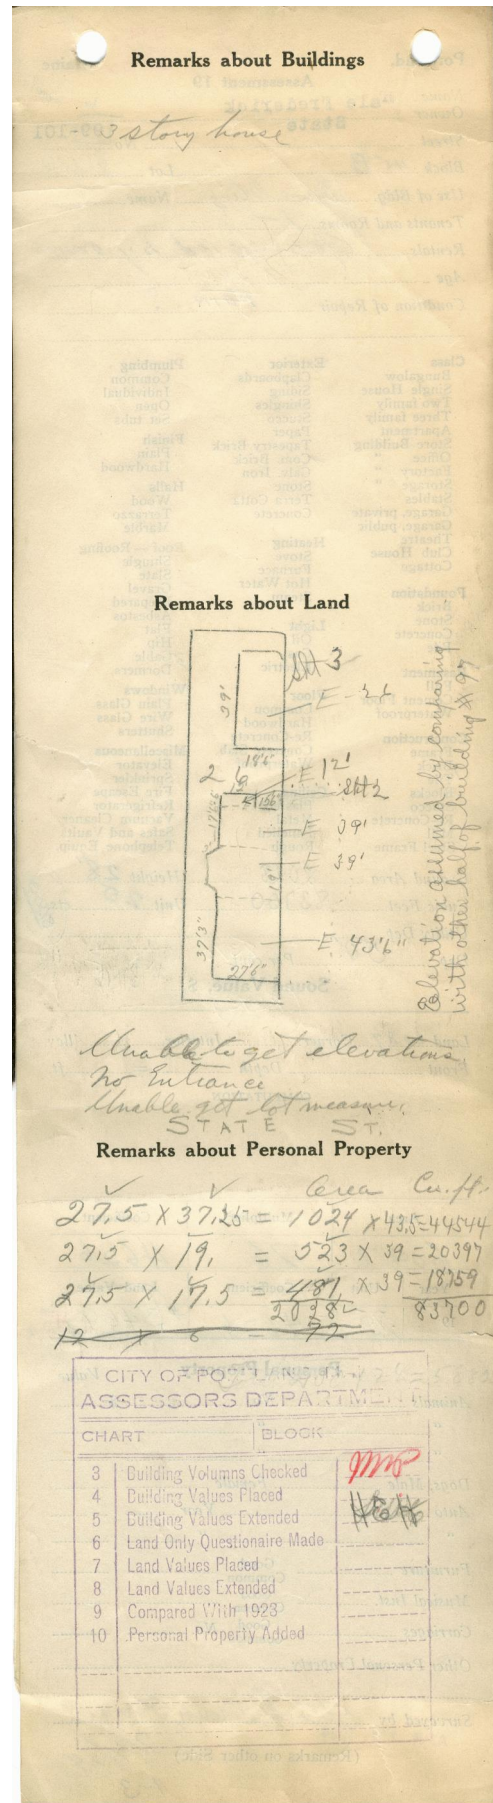 Remarks about Buildings
3 story house
Remarks about Land
Sht 3
39'
E - 26
18'6"
2
E 12'
Sht 2
17'6"
E 39'
19'
E 39'
37'3"
E 43'6"
27'6"
Elevation assumed by comparing
with other half of building # 97
Unable to get elevations.
No Entrance
Unable get lot measure.
STATE ST.
Remarks about Personal Property
Area Cu. ft.
27.5 X 37.25 = 1024 X 43.5 = 44544
27.5 X 19. = 523 X 39 = 20397
27.5 X 17.5 = 481 X 39 = 18759
2028 83700
12 X 6 = 72
CITY OF PORTLAND
ASSESSORS DEPARTMENT
CHART BLOCK
3 Building Volumns Checked
4 Building Values Placed
5 Building Values Extended HEH
6 Land Only Questionaire Made
7 Land Values Placed
8 Land Values Extended
9 Compared With 1923
10 Personal Property Added